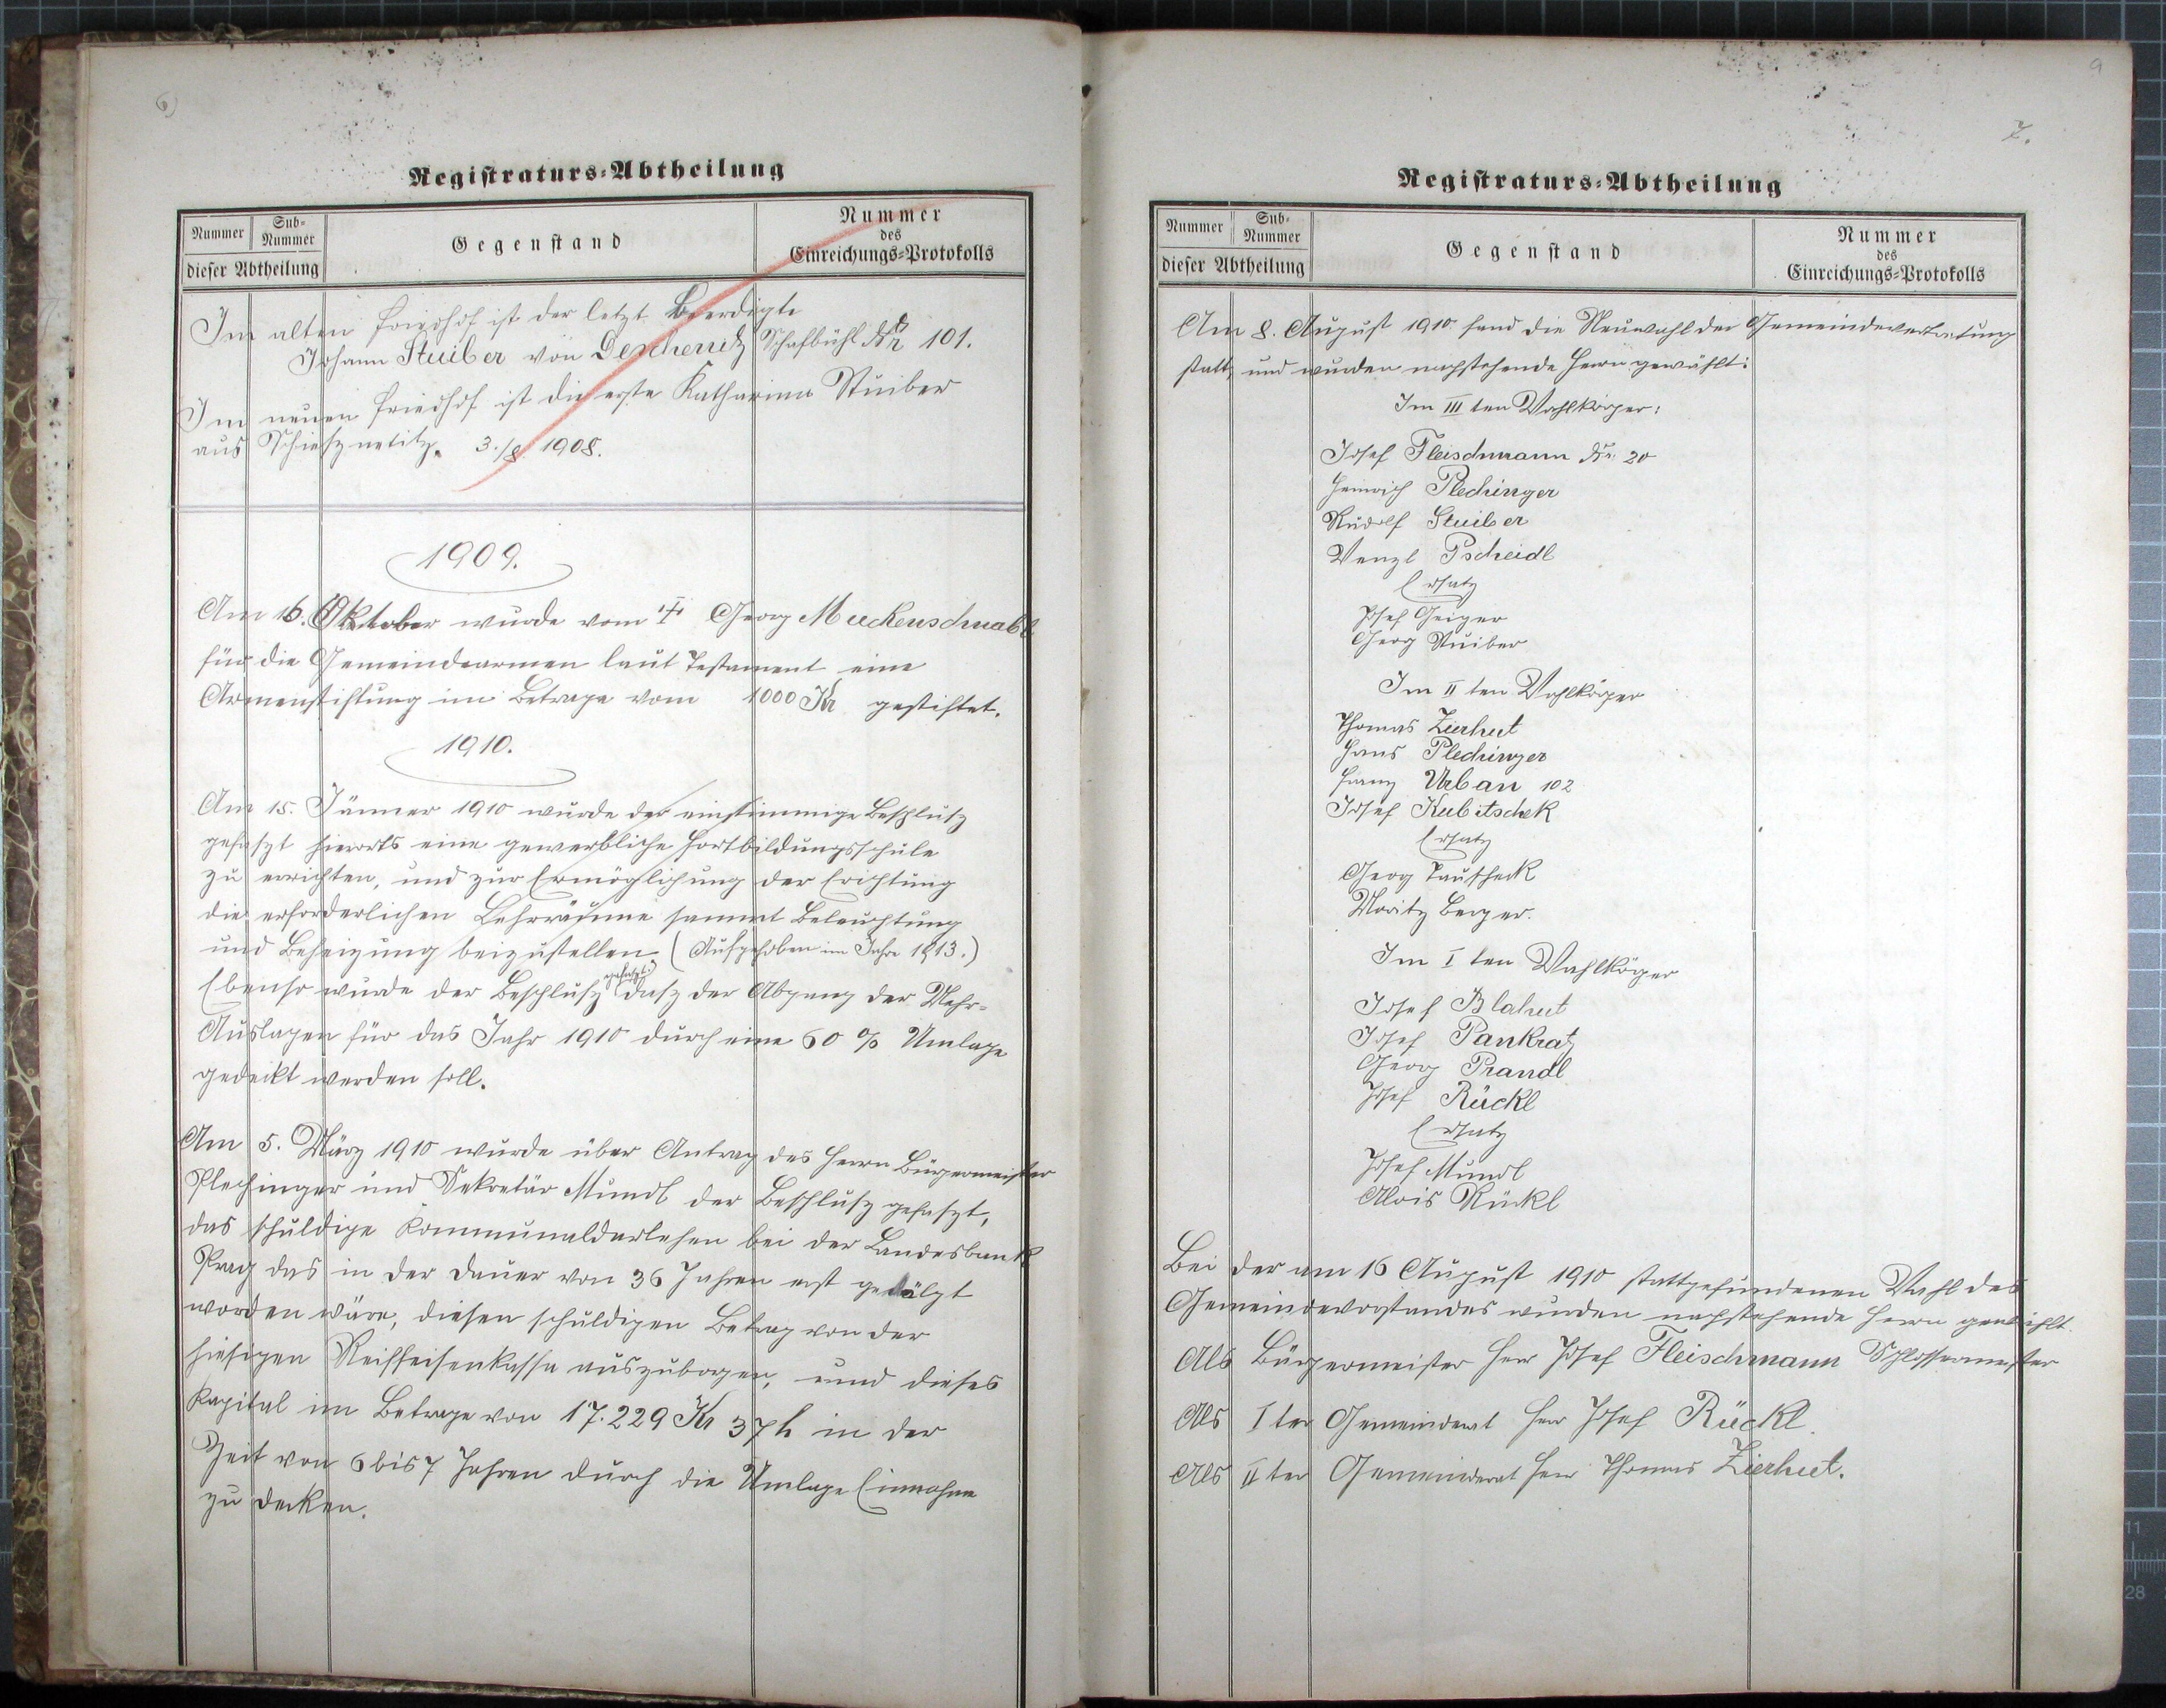 6)
Registraturs-Abtheilung
Nummer
Sub-Nummer
dieser Abtheilung
Gegenstand
Nummer
des
Einreichungs-Protokolls
Im alten Friedhof ist der letzt Beerdigte
Johann Stuiber von Deschenitz Schafbühl Nr 101.
Im neuen Friedhof ist die erste Katharina Stuiber
aus 3./8. 1908.
1909.
Am 16. Oktober wurde vom † Georg Muckenschnabl
für die Gemeindearmen laut Testament eine
Armenstiftung im Betrage vom 1000 Kr gestiftet.
1910.
Am 15. Jänner 1910 wurde der einstimmige Beschlusz
gefaszt hierorts eine gewerbliche Fortbildungsschule
zu errichten, und zur Ermöglichung der Erichtung
die erforderlichen Lehrräume sammt Beleuchtung
und Beheizung beizustellen. (Aufgehoben im Jahre 1913.)
Ebenso wurde der Beschlusz gefaszt dasz der Abgang der Mehr-
Auslagen für das Jahr 1910 durch eine 60 % Umlage
gedeckt werden soll.
Am 5. März 1910 wurde über Antrag des Herrn Bürgermeister
Plechinger und Sekretär Mundl der Beschlusz gefaszt,
das schuldige Kommunaldarlehen bei der Landesbank
Prag das in der Dauer von 36 Jahren erst getilgt
worden wäre, diesen schuldigen Betrag von der
hiesigen Reiffeisenkassa auszuborgen, und dieses
Kapital im Betrage von 17.229 Kr 37 h in der
Zeit von 6 bis 7 Jahren durch die Umlage Einnahme
zu decken.
9
7.
Registraturs-Abtheilung
Nummer
Sub-Nummer
dieser Abtheilung
Gegenstand
Nummer
des
Einreichungs-Protokolls
Am 8. August 1910 fand die Neuwahl der Gemeindevertretung
statt, und wurden nachstehende Herrn gewählt:
Im III ten Wahlkörper:
Josef Fleischmann Nr. 20
Heinrich Plechinger
Rudolf Stuiber
Wenzl Pscheidl
Ersatz
Josef Geiger
Georg Stuiber
Im II ten Wahlkörper
Thomas Zierhut
Hans Plechinger
Franz Urban 102
Josef Kubitschek
Ersatz
Georg Tauscheck
Moritz Berger.
Im I ten Wahlköper
Josef Blahut
Josef Pankratz
Georg Prandl
Josef Rückl
Ersatz
Josef Mundl
Alois Rückl
Bei der am 16 August 1910 stattgefundenen Wahl des
Gemeindevorstandes wurden nachstehende Herrn gewählt.
Als Bürgermeister Herr Josef Fleischmann Schlossermeister
Als I ter Gemeinderat Herr Josef Rückl.
Als II ter Gemeinderat Herr Thomas Zierhut.
11
28